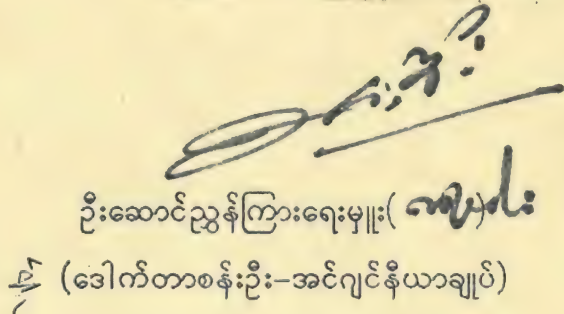 ဦးဆောင်ညွှန်ကြားရေးမှူး(
(ဒေါက်တာစန်းဦး-အင်ဂျင်နီယာချုပ်)